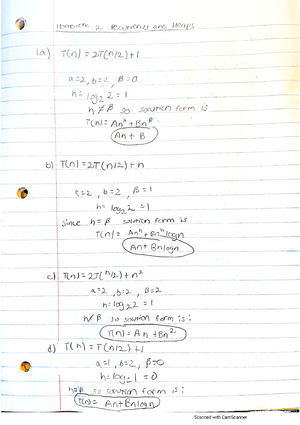 Homework 2 Recurrences and Heaps
1a) T(n) = 2T(n/2) + 1
a=2, b=2, β=0
h = log₂2 = 1
h ≠ β so solution form is
T(n) = Anʰ + Bnᵝ
An + B
b) T(n) = 2T(n/2) + n
a=2, b=2, β=1
h = log₂2 = 1
since h = β solution form is
T(n) = Anʰ + Bnʰ logn
An + Bnlogn
c) T(n) = 2T(n/2) + n²
a=2, b=2, β=2
h = log₂2 = 1
h ≠ β so solution form is:
T(n) = An + Bn²
d) T(n) = T(n/2) + 1
a=1, b=2, β=0
h = log₂1 = 0
h = β so solution form is:
T(n) = An + Bnlogn
Scanned with CamScanner